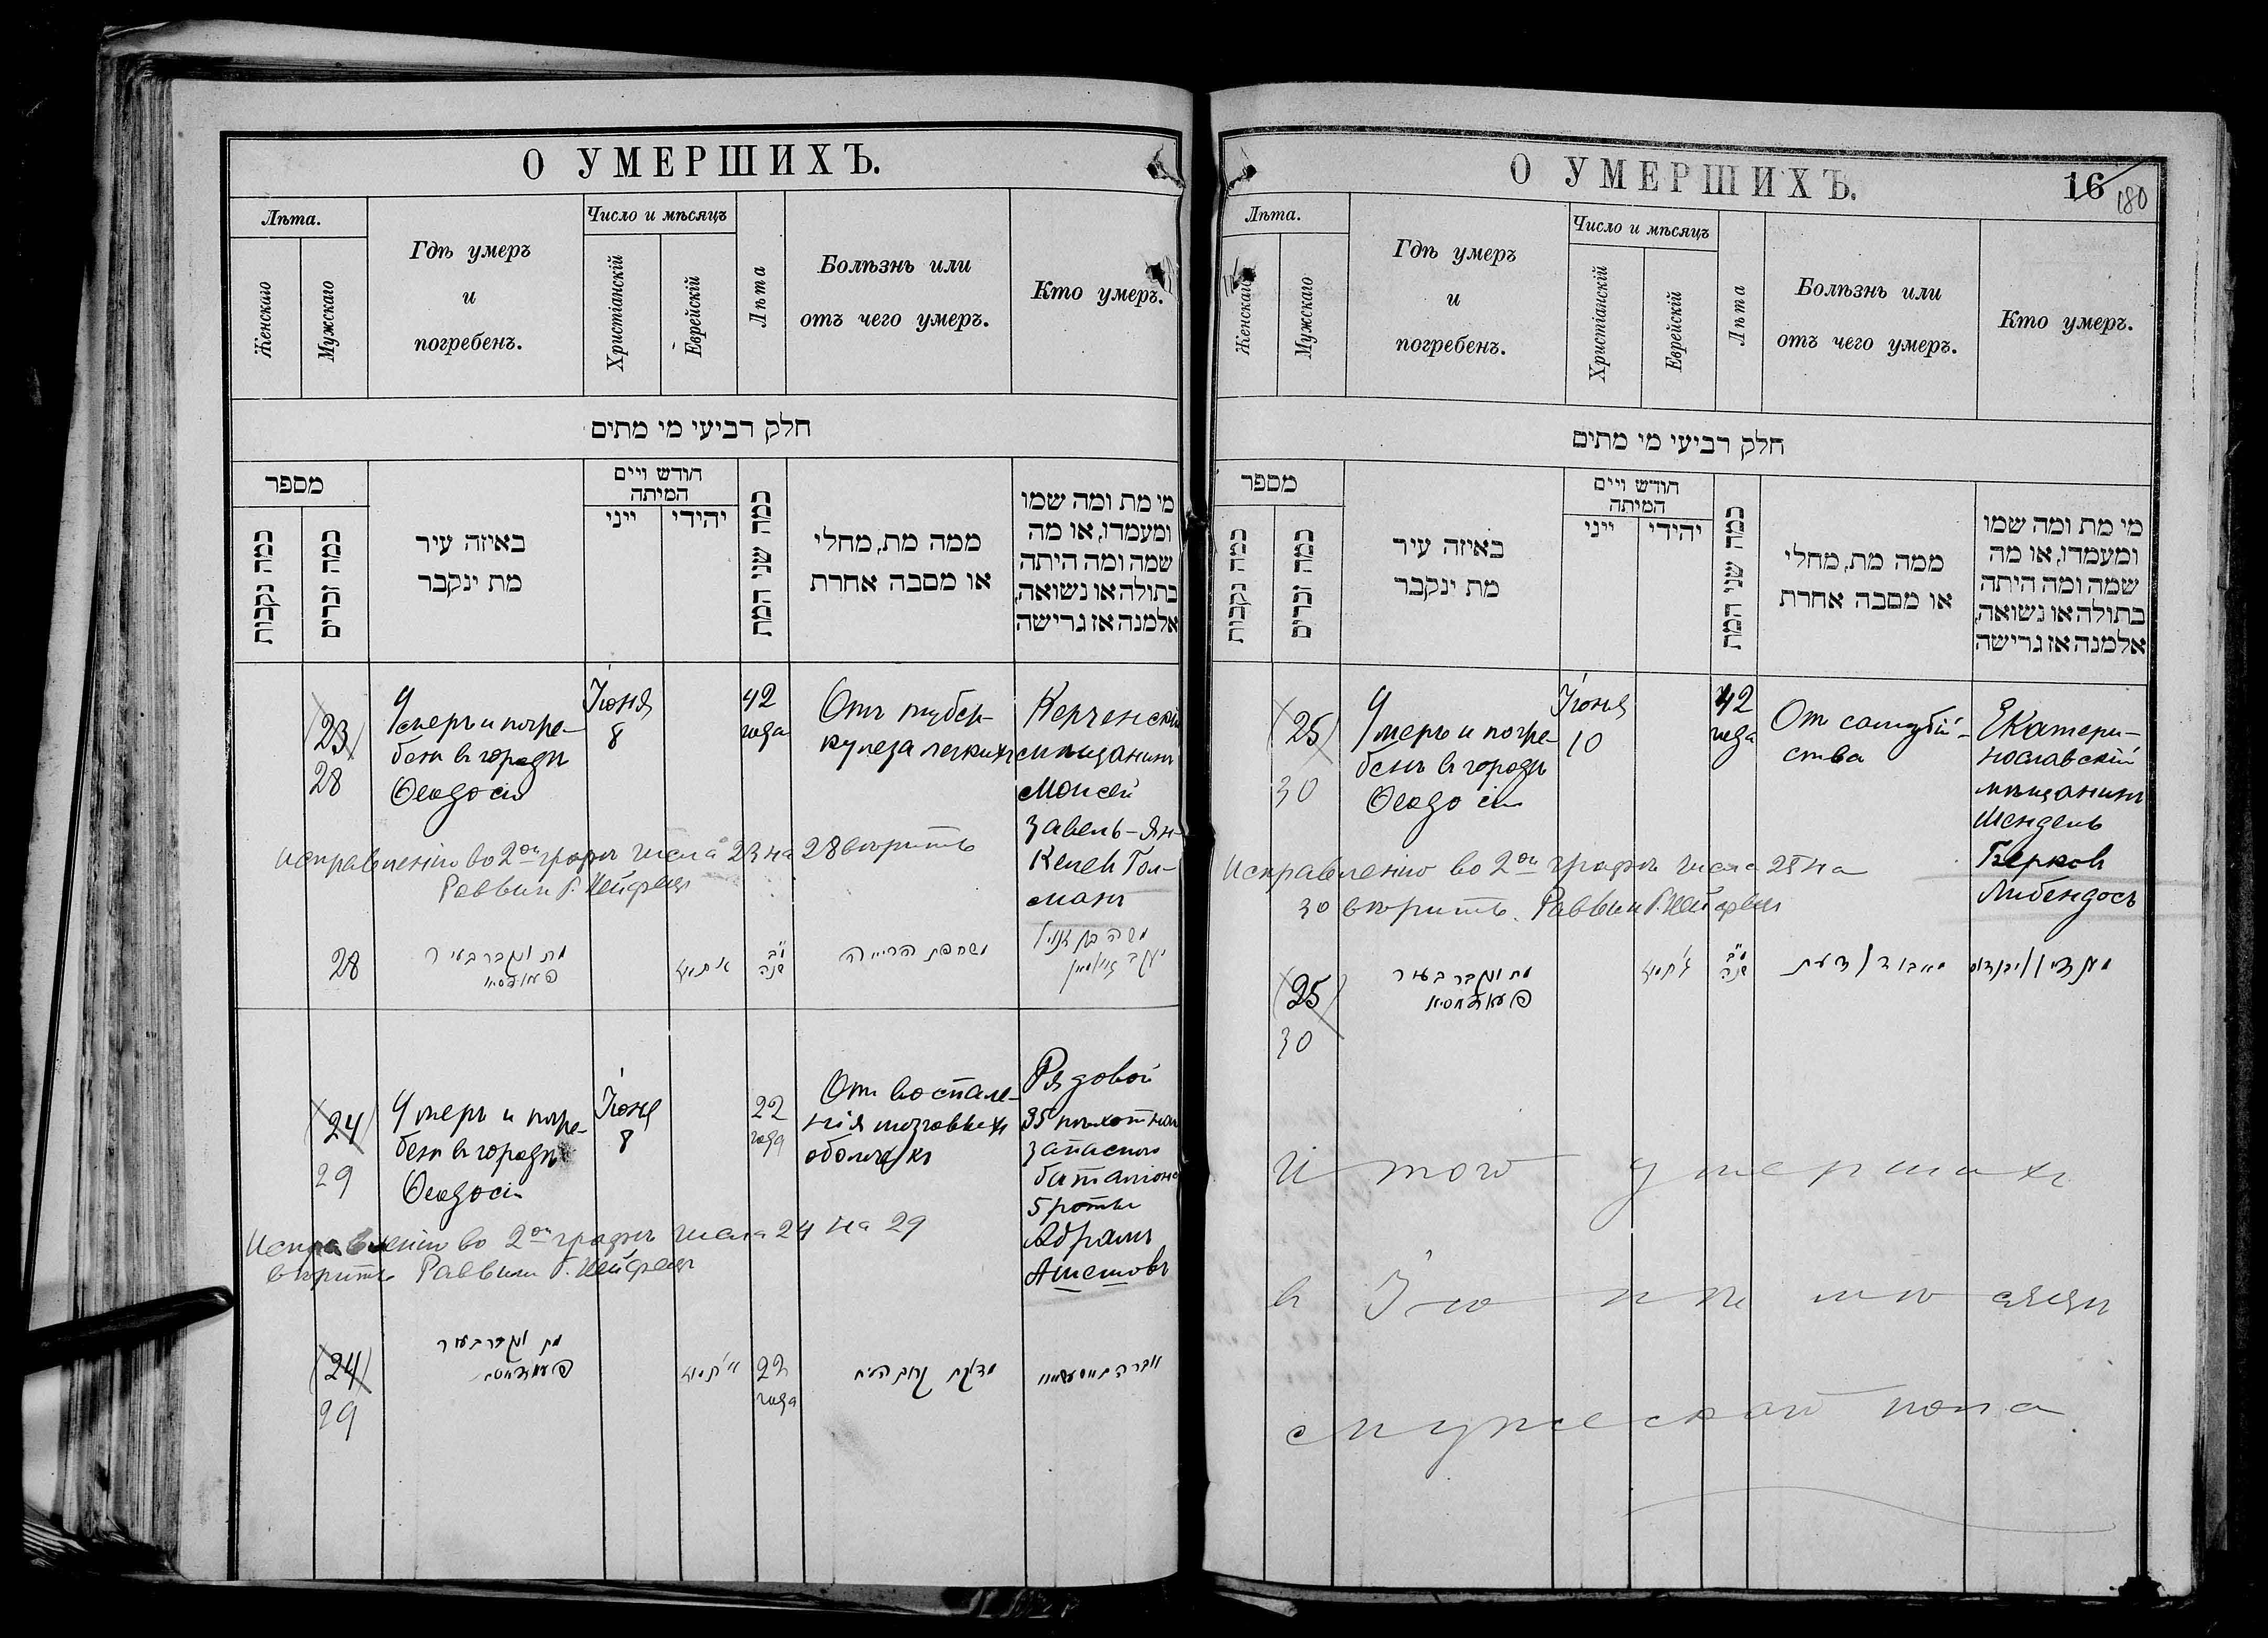 О УМЕРШИХЪ.
Лѣта.
Женскаго
Мужскаго
Гдѣ умеръ
и
погребенъ.
Число и мѣсяцъ
Христіанскій
Еврейскій
Лѣта
Болѣзнь или
отъ чего умеръ.
Кто умеръ.
חלק רביעי מי מתים
מספר
כמה נקבות
כמה זכרים
באיזה עיר
מת ינקבר
חודש ויים
המיתה
ייני
יהודי
כמה שני המת
ממה מת, מחלי
או מסבה אחרת
מי מת ומה שמו
ומעמדו, או מה
שמה ומה היתה
בתולה או נשואה,
אלמנה אז גרישה
23
28
Умеръ и погре-
бенъ въ городѣ
Ѳеодосіи
Іюня
8
42
года
Отъ тубер-
кулеза легкихъ
Керченскій
мѣщанинъ
Моисей
Завель-Ян-
Келев Гол-
манъ
Исправленію во 2ой графѣ числа 23 на 28 вѣрить
Раввинъ Г. Нейфельд
28
מת ונקבר בעיר
מ"ב
שנה
שחפת הריאה
24
29
Умеръ и погре-
бенъ въ городѣ
Ѳеодосіи
Іюня
8
22
года
Отъ воспале-
нія мозговыхъ
оболочекъ
Рядовой
35 пѣхотнаго
запаснаго
баталіона
5 роты
Абрамъ
Ашемовъ
Исправленію во 2ой графѣ числа 24 на 29
вѣрить Раввинъ
24
29
מת ונקבר בעיר
22
года
О УМЕРШИХЪ.
16
180
Лѣта.
Женскаго
Мужскаго
Гдѣ умеръ
и
погребенъ.
Число и мѣсяцъ
Христіанскій
Еврейскій
Лѣта
Болѣзнь или
отъ чего умеръ.
Кто умеръ.
חלק רביעי מי מתים
מספר
כמה נקבות
כמה זכרים
באיזה עיר
מת ינקבר
חודש ויים
המיתה
ייני
יהודי
כמה שני המת
ממה מת, מחלי
או מסבה אחרת
מי מת ומה שמו
ומעמדו, או מה
שמה ומה היתה
בתולה או נשואה,
אלמנה אז גרישה
25
30
Умеръ и погре-
бенъ въ городѣ
Ѳеодосіи
Іюня
10
42
года
От самубій-
ства
Екатери-
нославскій
мѣщанинъ
Мендель
Берков
Либендосъ
Исправленію во 2ой графѣ числа 25 на
30 вѣрить. Раввинъ
25
30
מת ונקבר בעיר
מ"ב
שנה
מאיבוד לדעת
Итого умершихъ
въ Іюнѣ мѣсяцѣ
мужескаго пола